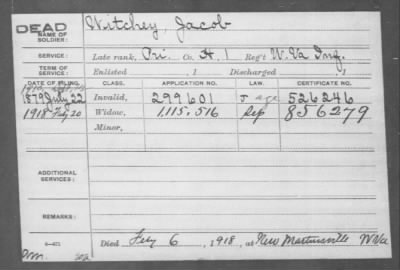 DEAD
NAME OF SOLDIER: Witchey Jacob
SERVICE: Late rank, Pri. Co. H. 1 Reg't W.Va Inf.
TERM OF SERVICE: Enlisted , 1 Discharged , 1
DATE OF FILING. CLASS. APPLICATION NO. LAW. CERTIFICATE NO.
1879 July 22 Invalid, 299601 526246
1918 Feby 20 Widow, 1,115,516 Sep 856279
Minor,
ADDITIONAL SERVICES:
REMARKS:
Died Feby 6, 1918, at New Martinsville W.Va